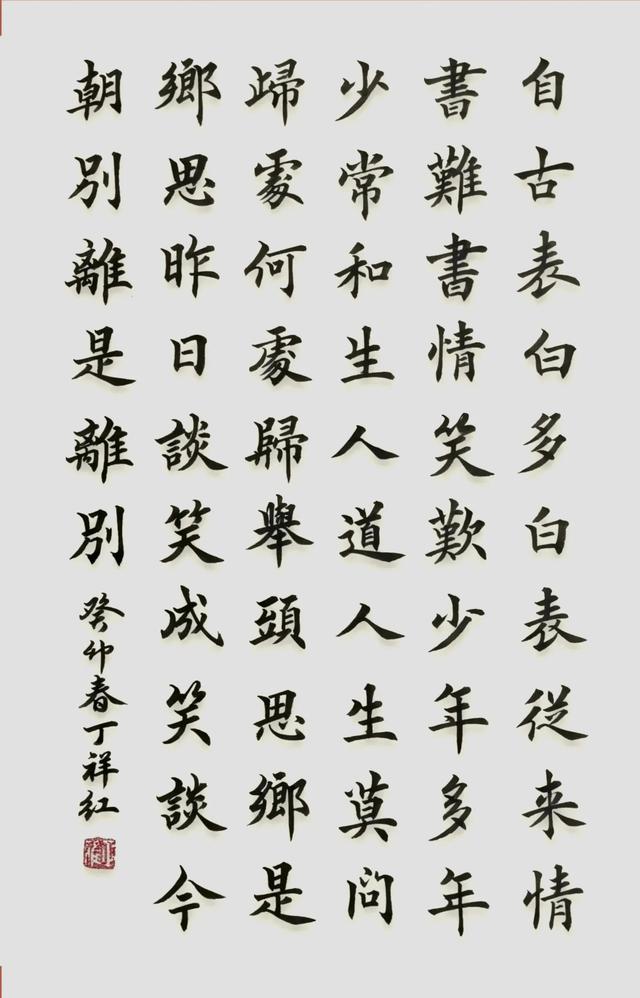 自古表白多白表従来情
書難書情笑歎少年多年
少常和生人道人生莫問
歸處何處歸舉頭思鄉是
鄉思昨日談笑成笑談今
朝別離是離別
癸卯春丁祥红